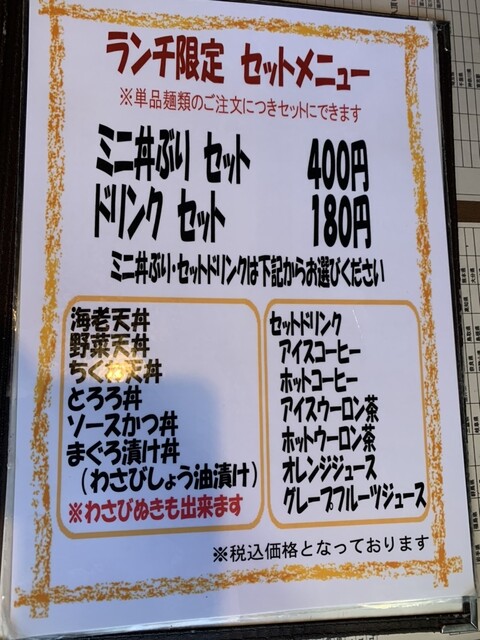 ランチ限定 セットメニュー
※単品麺類のご注文につきセットにできます
ミニ丼ぶり セット 400円
ドリンク セット 180円
ミニ丼ぶり・セットドリンクは下記からお選びください
海老天丼
野菜天丼
ちく天丼
とろろ丼
ソースかつ丼
まぐろ漬け丼
(わさびしょう油漬け)
※わさびぬきも出来ます
セットドリンク
アイスコーヒー
ホットコーヒー
アイスウーロン茶
ホットウーロン茶
オレンジジュース
グレープフルーツジュース
※税込価格となっております